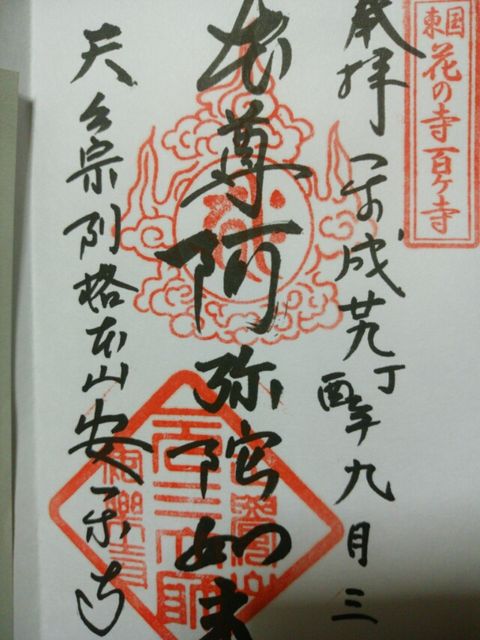 東国花の寺百ヶ寺
奉拝 平成廿九丁酉年九月三
本尊阿弥陀如来
天台宗別格本山安楽寺